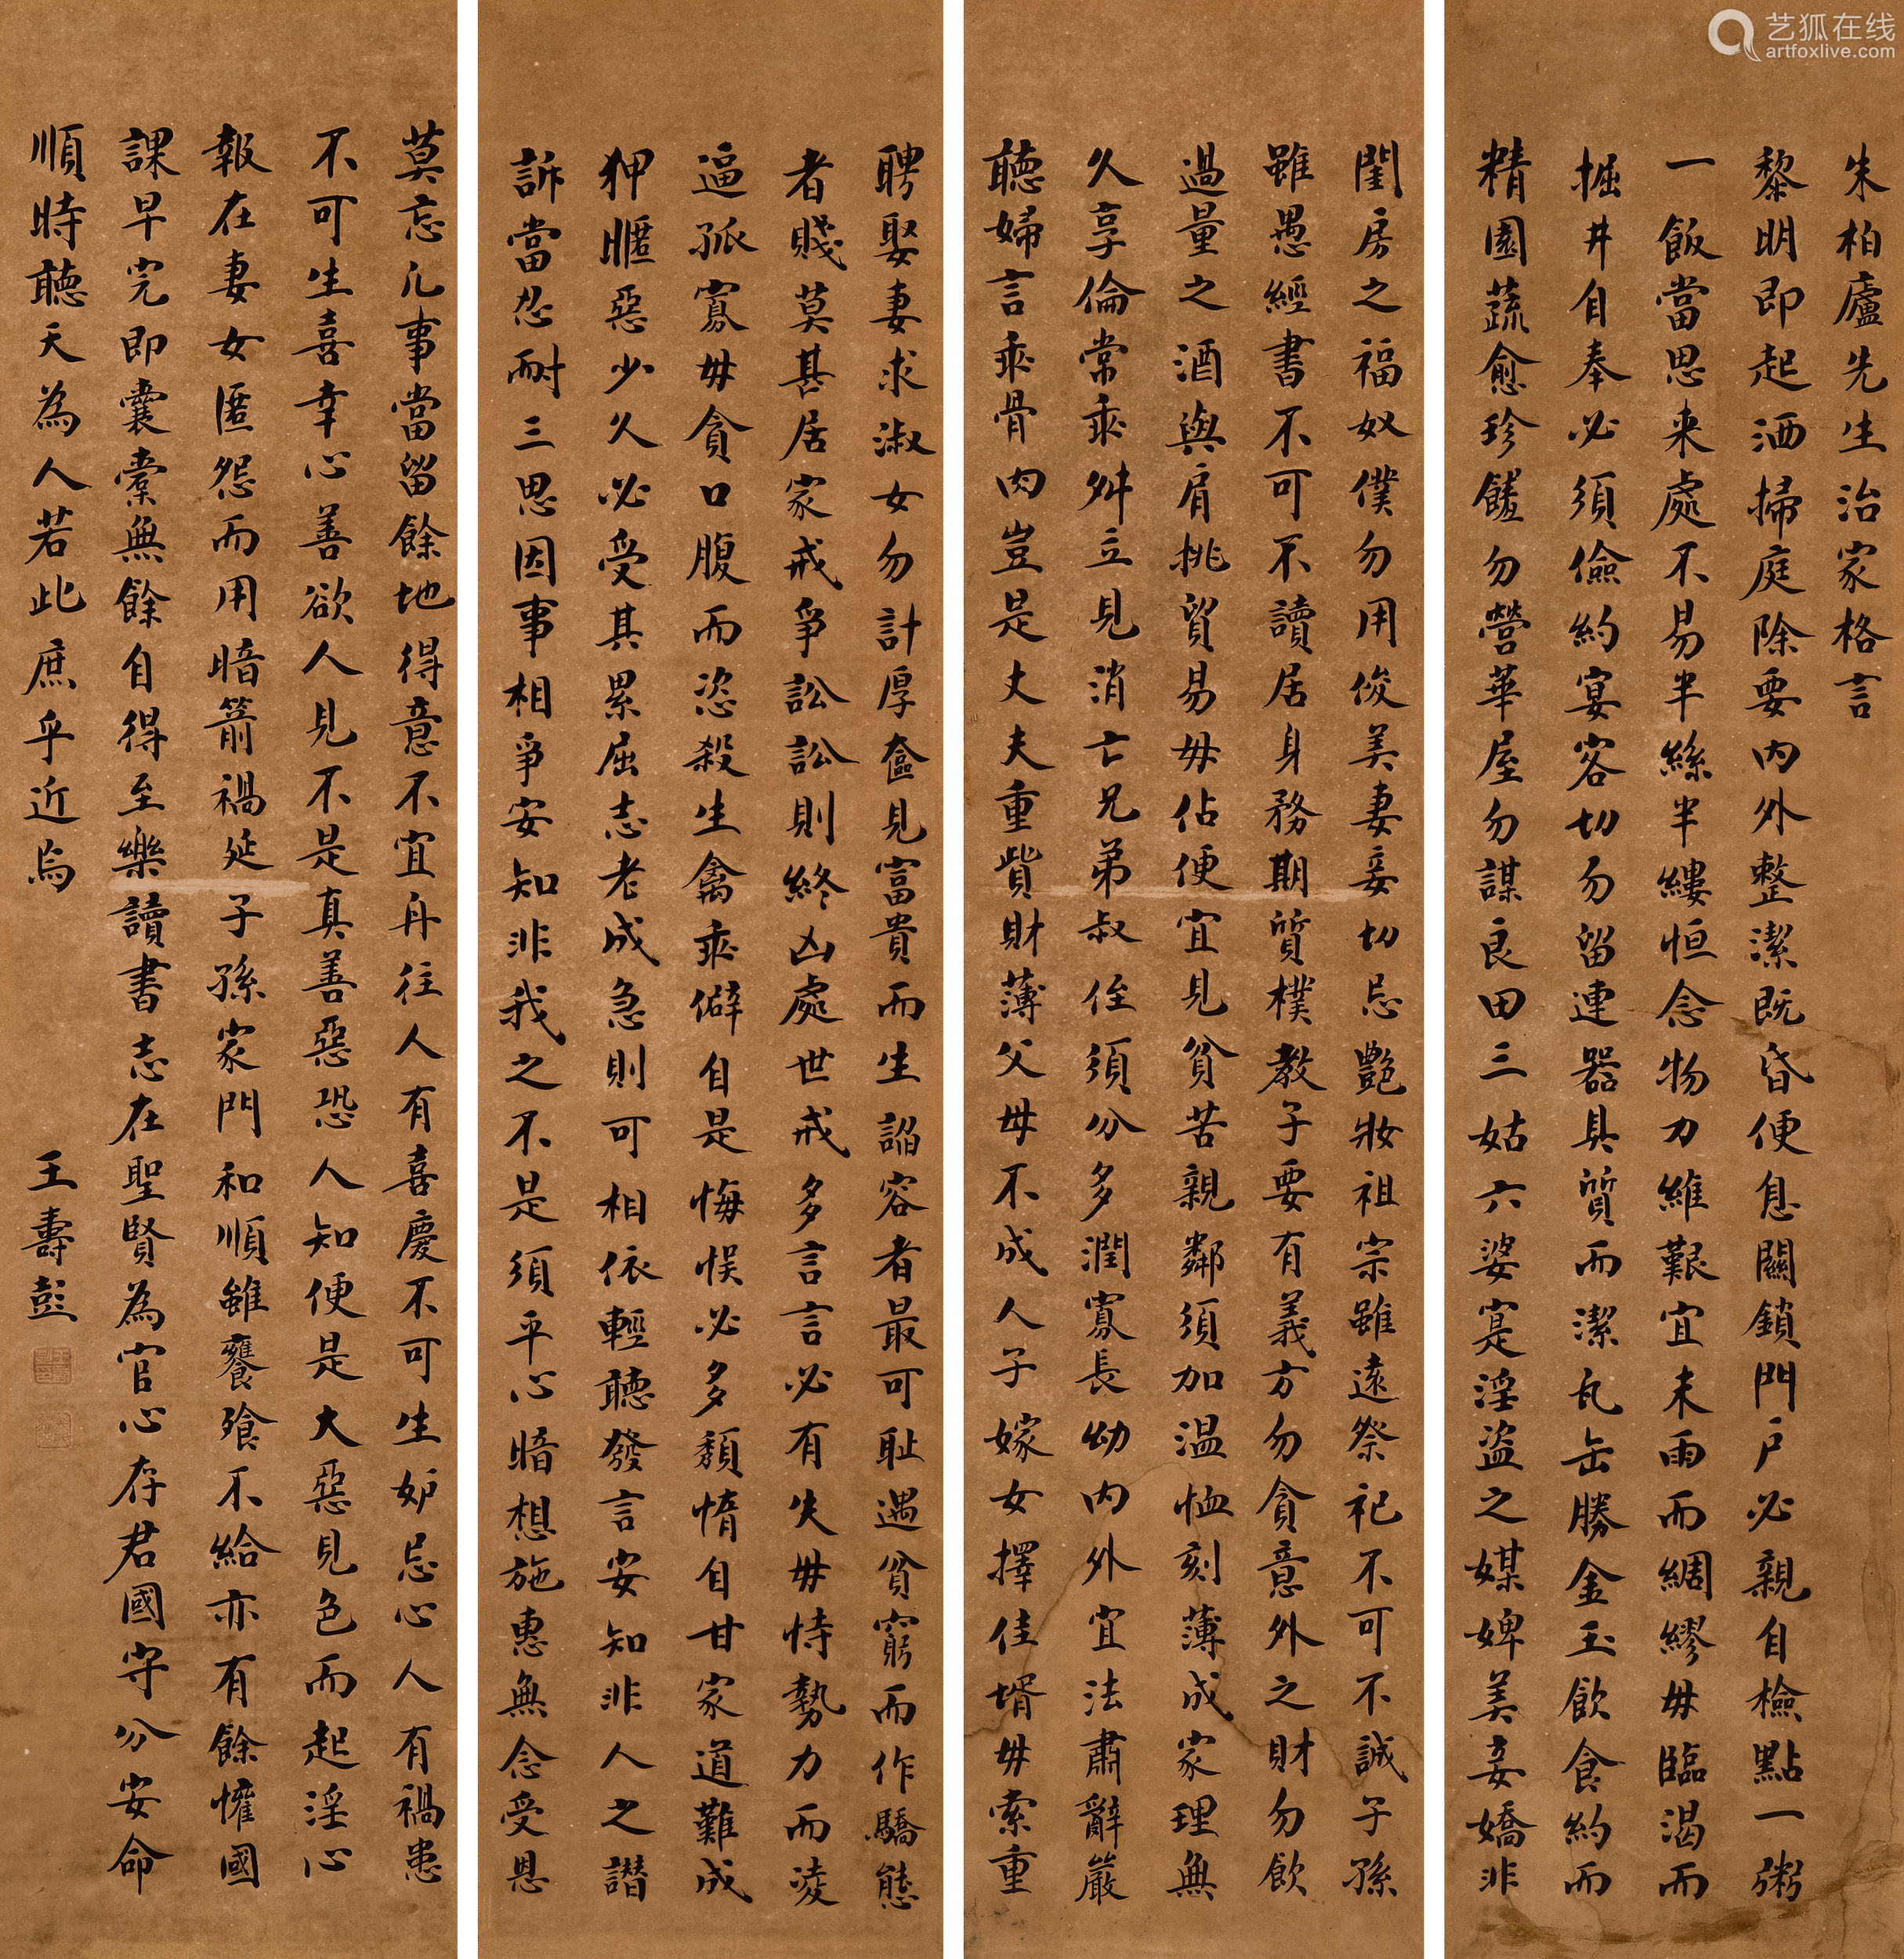 朱柏廬先生治家格言
黎明即起洒掃庭除要內外整潔既昏便息關鎖門戶必親自檢點一粥
一飯當思来處不易半絲半縷恒念物力維艱宜未雨而綢繆毋臨渴而
掘井自奉必須儉約宴客切勿留連器具質而潔瓦缶勝金玉飲食約而
精園蔬愈珍饈勿營華屋勿謀良田三姑六婆寔淫盜之媒婢美妾嬌非
閨房之福奴僕勿用俊美妻妾切忌艷妝祖宗雖遠祭祀不可不誠子孫
雖愚經書不可不讀居身務期質樸教子要有義方勿貪意外之財勿飲
過量之酒與肩挑貿易毋佔便宜見貧苦親鄰須加温恤刻薄成家理無
久享倫常乖舛立見消亡兄弟叔侄須分多潤寡長幼內外宜法肅辭嚴
聽婦言乖骨肉豈是丈夫重貲財薄父母不成人子嫁女擇佳壻毋索重
聘娶妻求淑女勿計厚奩見富貴而生諂容者最可恥遇貧窮而作驕態
者賤莫甚居家戒爭訟訟則終凶處世戒多言言必有失毋恃勢力而淩
逼孤寡毋貪口腹而恣殺生禽乖僻自是悔悮必多頹惰自甘家道難成
狎暱惡少久必受其累屈志老成急則可相依輕聽發言安知非人之譖
訴當忍耐三思因事相爭安知非我之不是須平心暗想施惠無念受恩
莫忘凡事當留餘地得意不宜再往人有喜慶不可生妒忌心人有禍患
不可生喜幸心善欲人見不是真善惡恐人知便是大惡見色而起淫心
報在妻女匿怨而用暗箭禍延子孫家門和順雖饔飱不給亦有餘懽國
課早完即囊橐無餘自得至樂讀書志在聖賢為官心存君國守分安命
順時聽天為人若此庶乎近焉
王壽彭
艺狐在线
artfoxlive.com